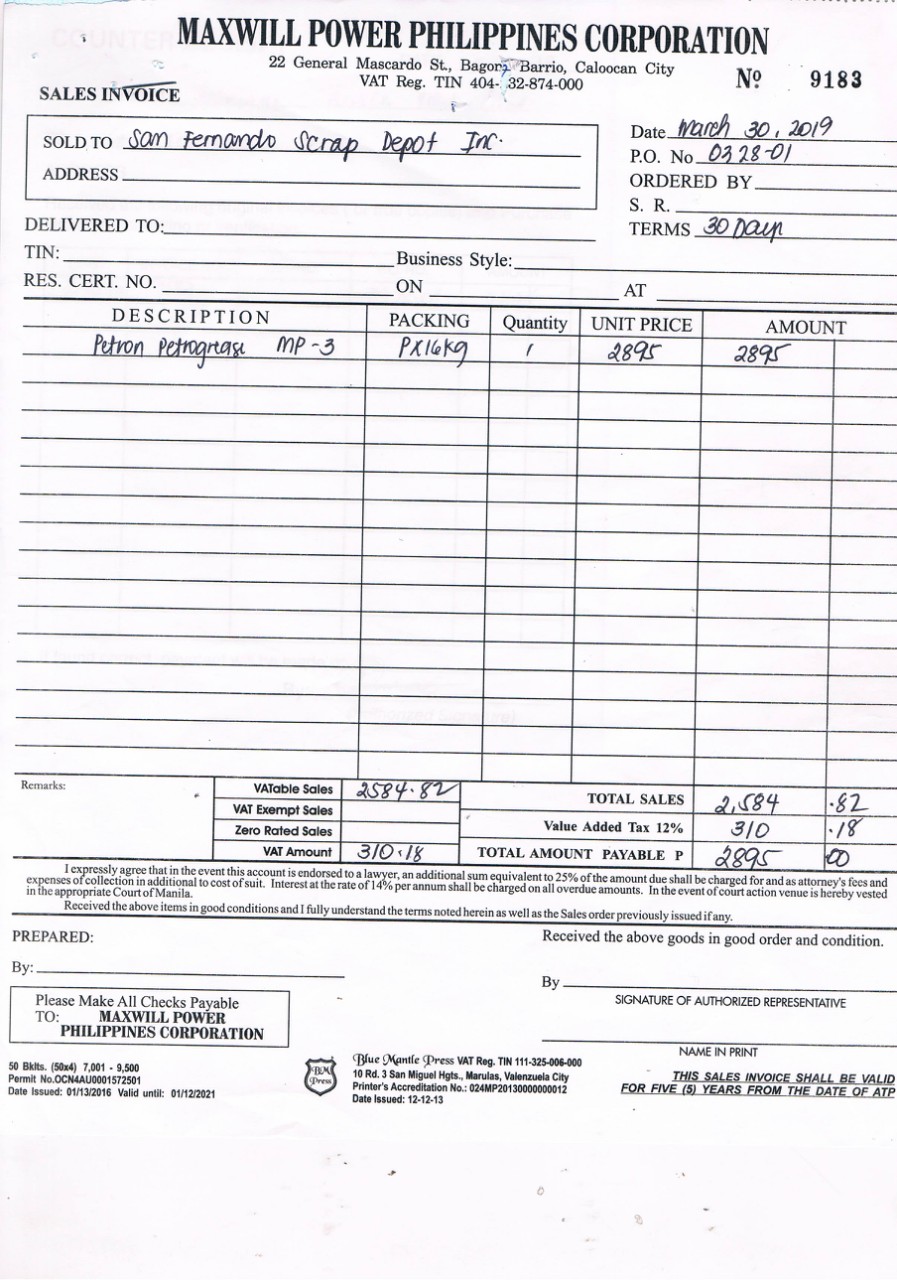 MAXWILL POWER PHILIPPINES CORPORATION
22 General Mascardo St., Bagong Barrio, Caloocan City
VAT Reg. TIN 404- 32-874-000
Nº 9183
SALES INVOICE
SOLD TO San Fernando Scrap Depot Inc.
ADDRESS
Date March 30, 2019
P.O. No 0328-01
ORDERED BY
S. R.
TERMS 30 Days
DELIVERED TO:
TIN: Business Style:
RES. CERT. NO. ON AT
DESCRIPTION PACKING Quantity UNIT PRICE AMOUNT
Petron Petrogrease MP-3 PX16kg 1 2895 2895
Remarks:
VATable Sales 2584.82
VAT Exempt Sales
Zero Rated Sales
VAT Amount 310.18
TOTAL SALES 2,584 .82
Value Added Tax 12% 310 .18
TOTAL AMOUNT PAYABLE P 2895 00
I expressly agree that in the event this account is endorsed to a lawyer, an additional sum equivalent to 25% of the amount due shall be charged for and as attorney's fees and
expenses of collection in additional to cost of suit. Interest at the rate of 14% per annum shall be charged on all overdue amounts. In the event of court action venue is hereby vested
in the appropriate Court of Manila.
Received the above items in good conditions and I fully understand the terms noted herein as well as the Sales order previously issued if any.
PREPARED:
By:
Received the above goods in good order and condition.
By
SIGNATURE OF AUTHORIZED REPRESENTATIVE
NAME IN PRINT
Please Make All Checks Payable
TO: MAXWILL POWER
PHILIPPINES CORPORATION
50 Bklts. (50x4) 7,001 - 9,500
Permit No.OCN4AU0001572501
Date Issued: 01/13/2016 Valid until: 01/12/2021
BM
Press
Blue Mantle Press VAT Reg. TIN 111-325-006-000
10 Rd. 3 San Miguel Hgts., Marulas, Valenzuela City
Printer's Accreditation No.: 024MP20130000000012
Date Issued: 12-12-13
THIS SALES INVOICE SHALL BE VALID
FOR FIVE (5) YEARS FROM THE DATE OF ATP